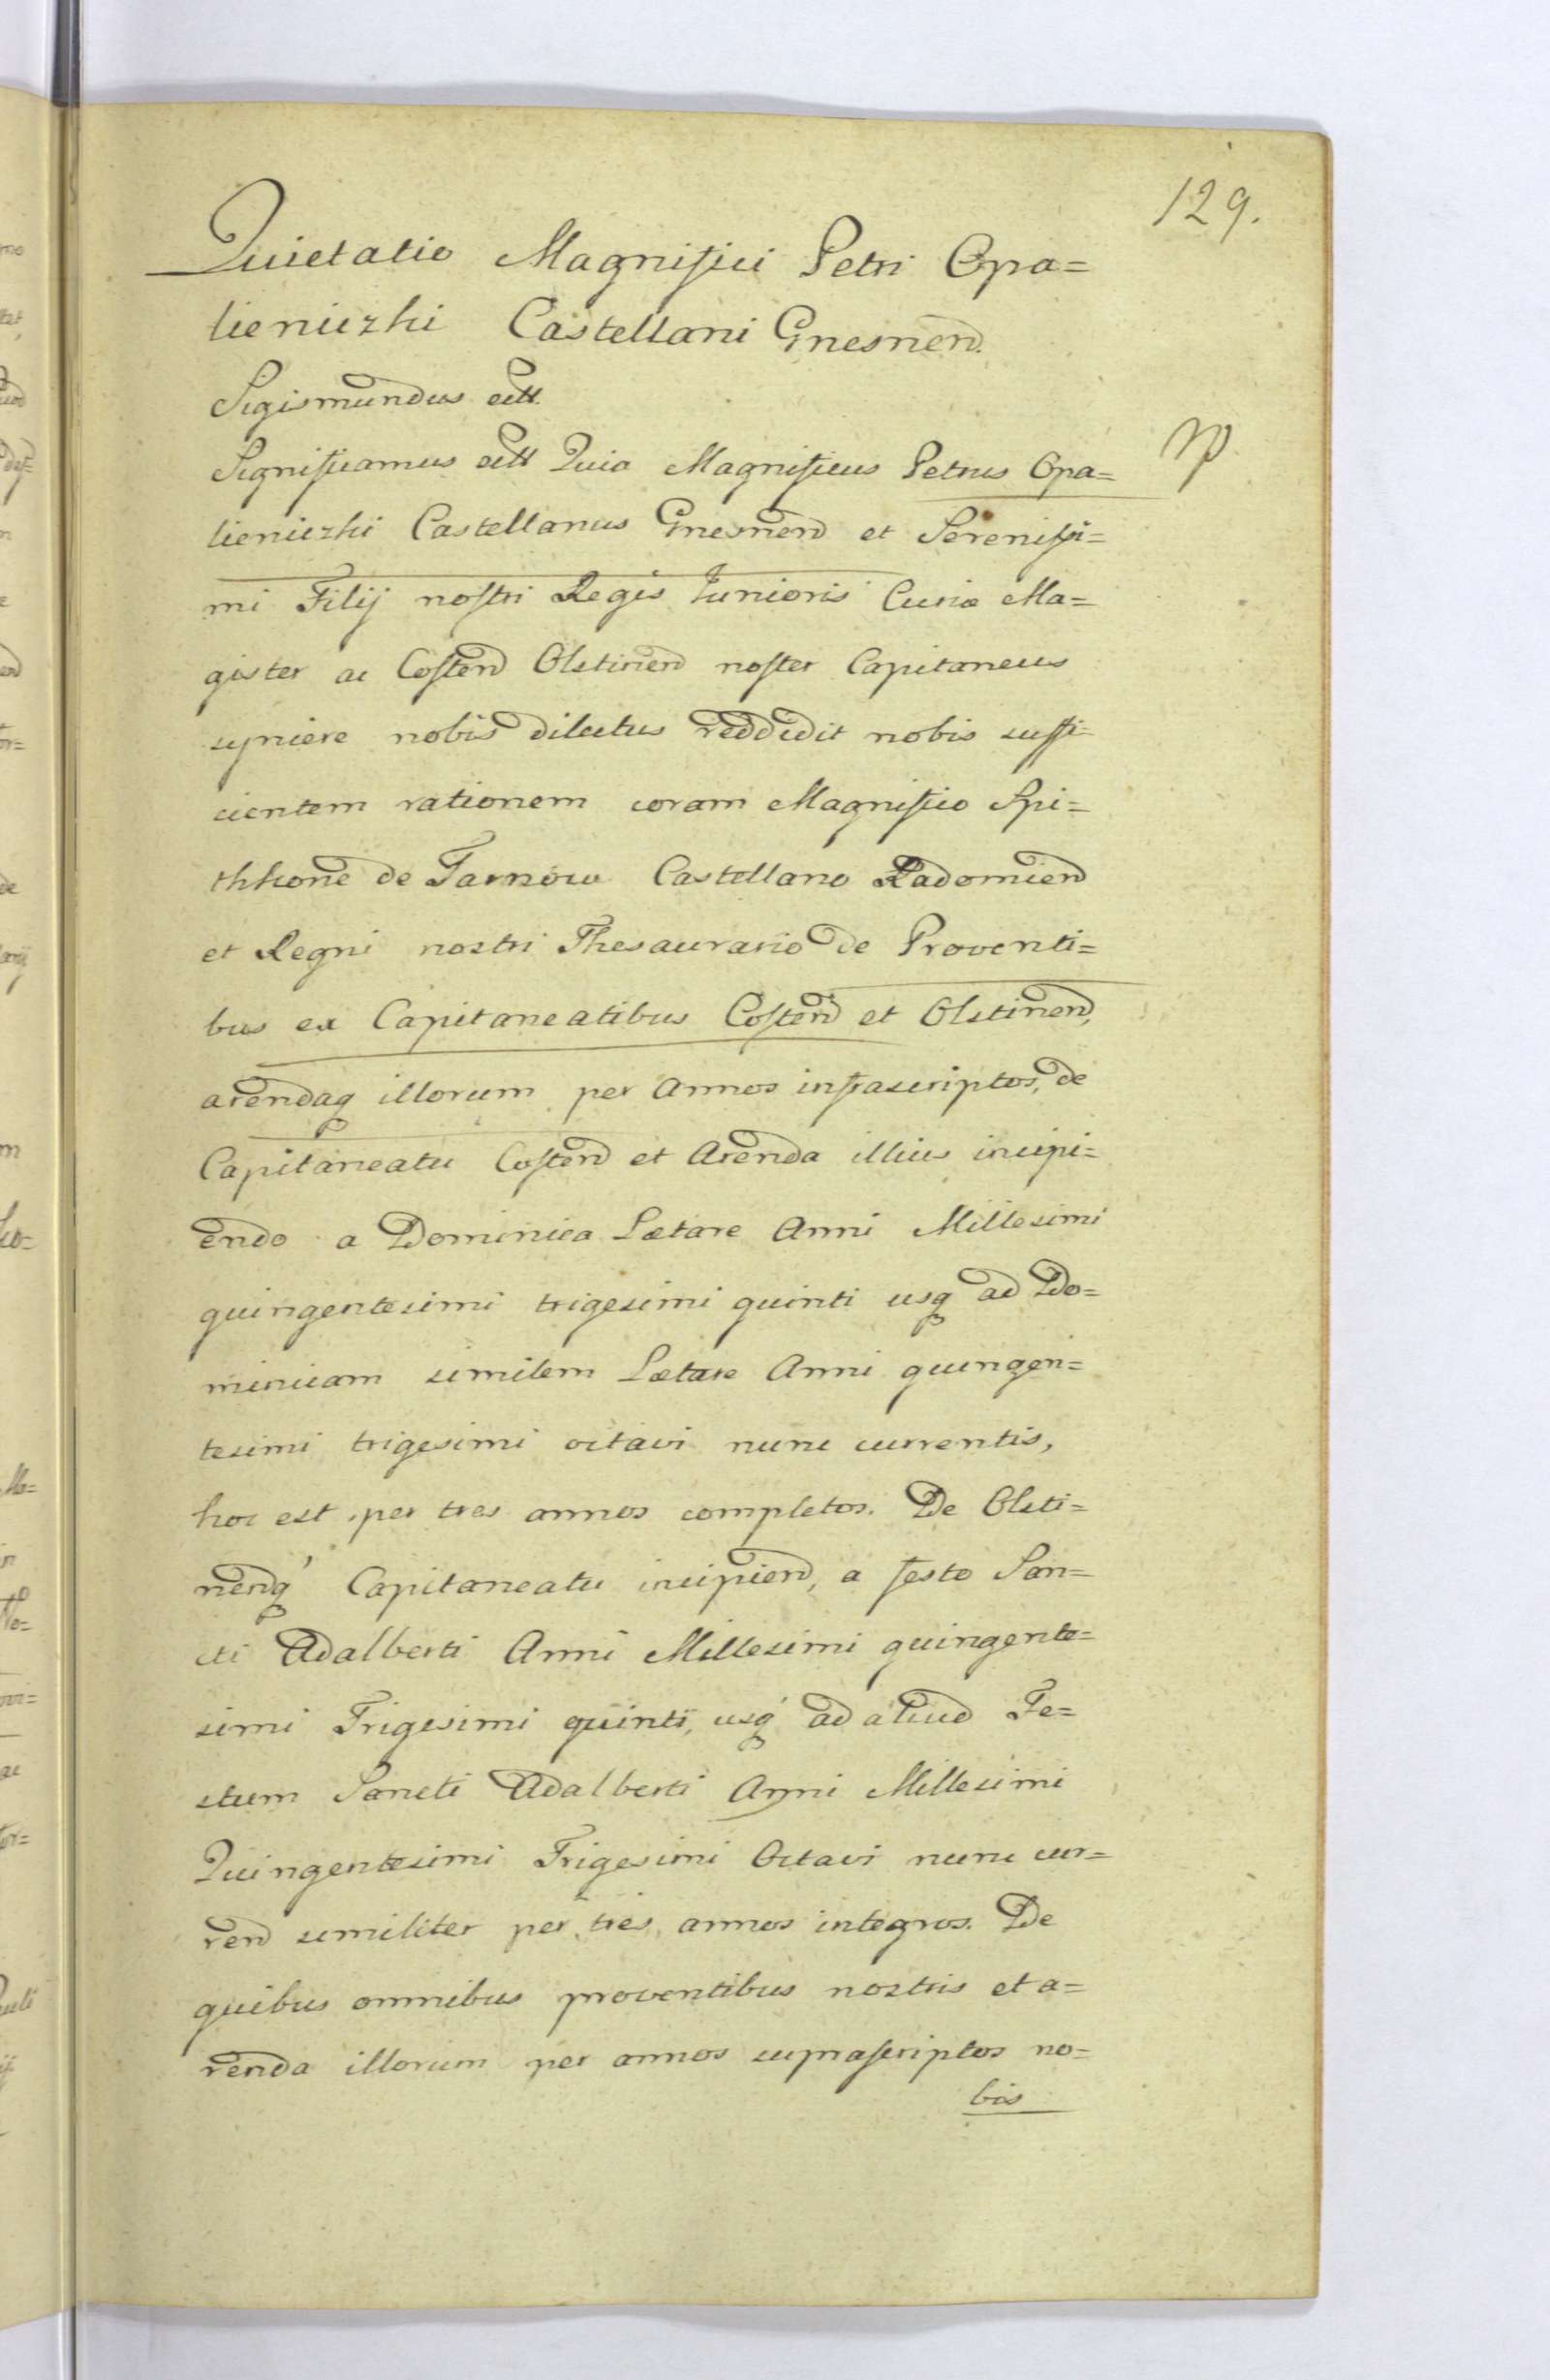 129.
Quietatio Magnifici Petri Opa=
lieniczki Castellani Gnesnen̄.
Sigismundus ett.
Significamus ett Quia Magnificus Petrus Opa=
lieniczki Castellanus Gnesnen̄ et Serenissi=
mi Filij nostri Regis Iunioris Curiæ Ma=
gister ac Costen̄ Olstinen̄ noster Capitaneus
syncere nobis dilectus reddidit nobis suffi-
cientem rationem coram Magnifico Spi=
thkone de Tarnow Castellano Radomien̄
et Regni nostri Thesaurario de Proventi=
bus ex Capitaneatibus Costen̄ et Olstinen̄,
arendaq illorum per Annos infrascriptos, de
Capitaneatu Costen̄ et Arenda illius incipi=
endo a Dominica Lætare Anni Millesimi
quingentesimi trigesimi quinti usq ad Do=
minicam similem Lætare Anni quingen=
tesimi trigesimi octavi nunc currentis,
hoc est per tres annos completos. De Olsti=
nenq́ Capitaneatu incipien̄, a festo San=
cti Adalberti Anni Millesimi quingente=
simi Trigesimi quinti, usq́ ad aliud Fe=
stum Sancti Adalberti Anni Millesimi
Quingentesimi Trigesimi Octavi nunc cur=
ren̄ similiter per tres annos integros. De
quibus omnibus proventibus nostris et a=
renda illorum per annos suprascriptos no=
bis